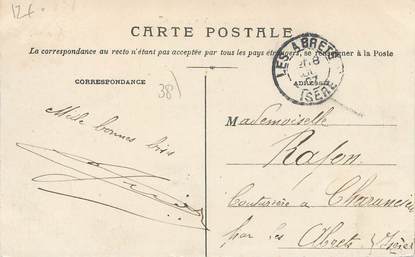 12f
CARTE POSTALE
La correspondance au recto n'étant pas acceptée par tous les pays étrangers, se renseigner à la Poste
LES ABRETS
ISÈRE
CORRESPONDANCE
38)
ADRESSE
Mille bonnes bises
Mademoiselle
Rafon
Couturière à Charancieu
par les Abrets
Isère